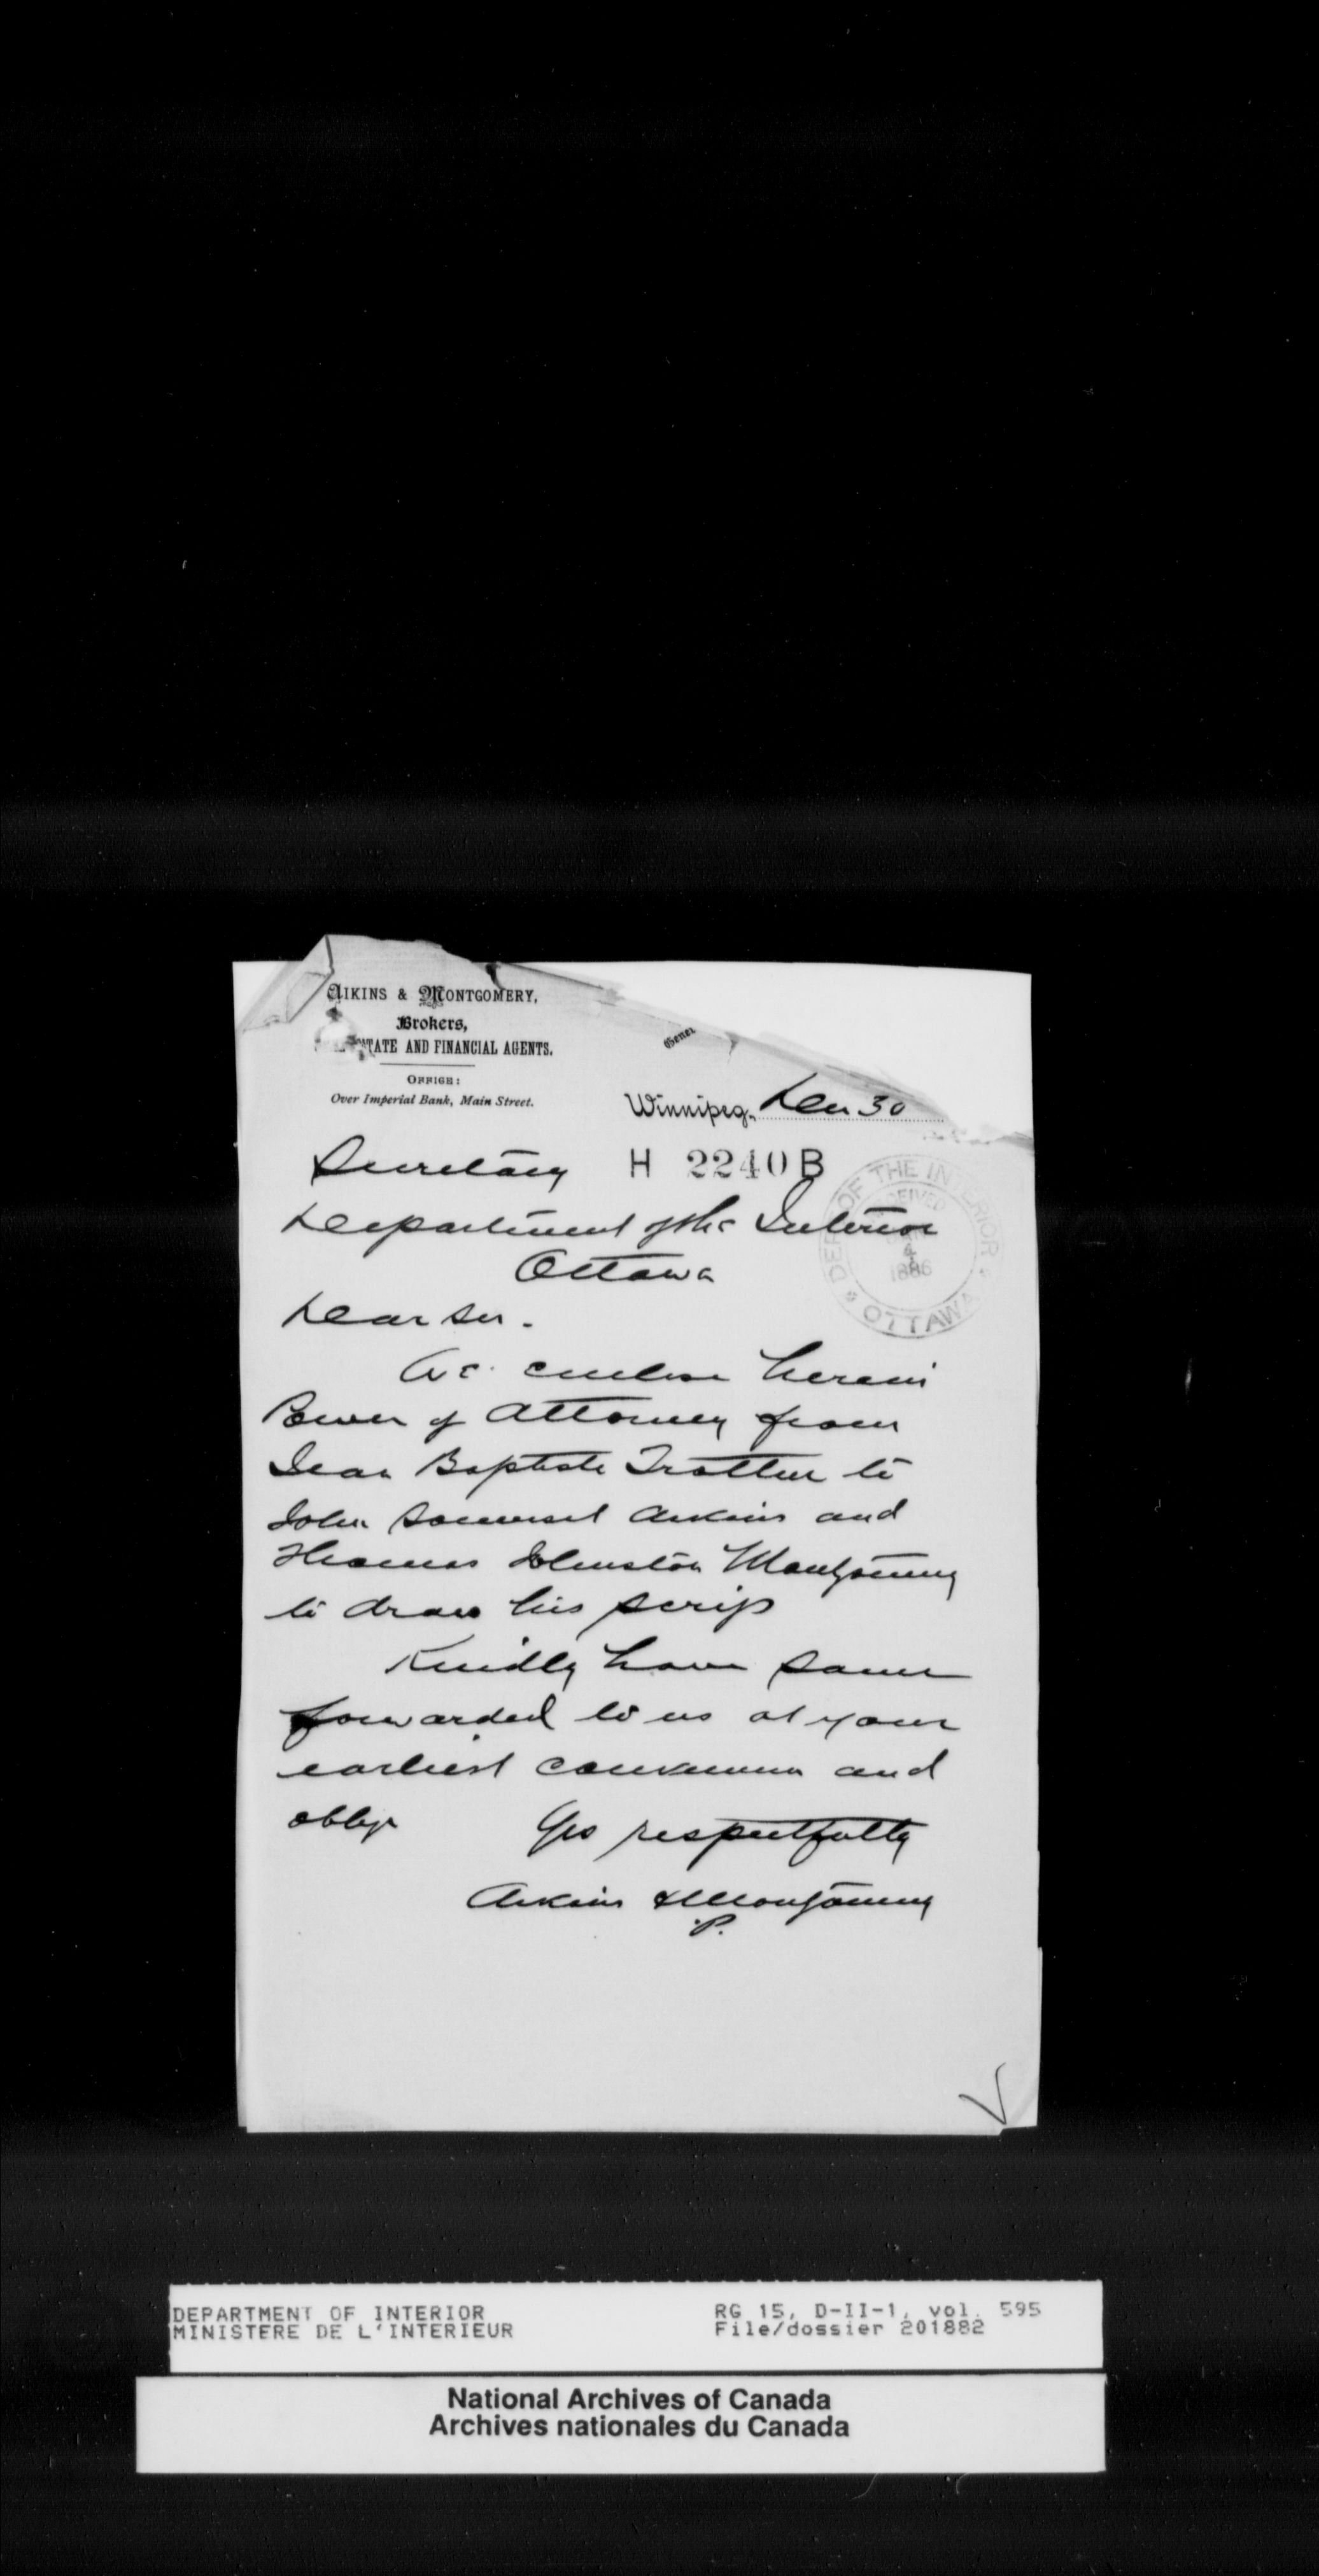 AIKINS & MONTGOMERY,
Brokers,
TATE AND FINANCIAL AGENTS.
OFFICE:
Over Imperial Bank, Main Street.
Gener
Winnipeg, Dec 30
Secretary H 2240 B
Department of the Interior
Ottawa
DEPT OF THE INTERIOR
RECEIVED
1886
OTTAWA
Dear Sir.
We enclose herein
Power of Attorney from
Jean Baptiste Trottier to
John Somerset Aikins and
Thomas Johnston Montgomery
to draw his scrip
Kindly have same
forwarded to us at your
earliest convenience and
oblige Yrs respectfully
Aikins & Montgomery
P.
DEPARTMENT OF INTERIOR RG 15, D-II-1, vol. 595
MINISTERE DE L'INTERIEUR File/dossier 201882
National Archives of Canada
Archives nationales du Canada